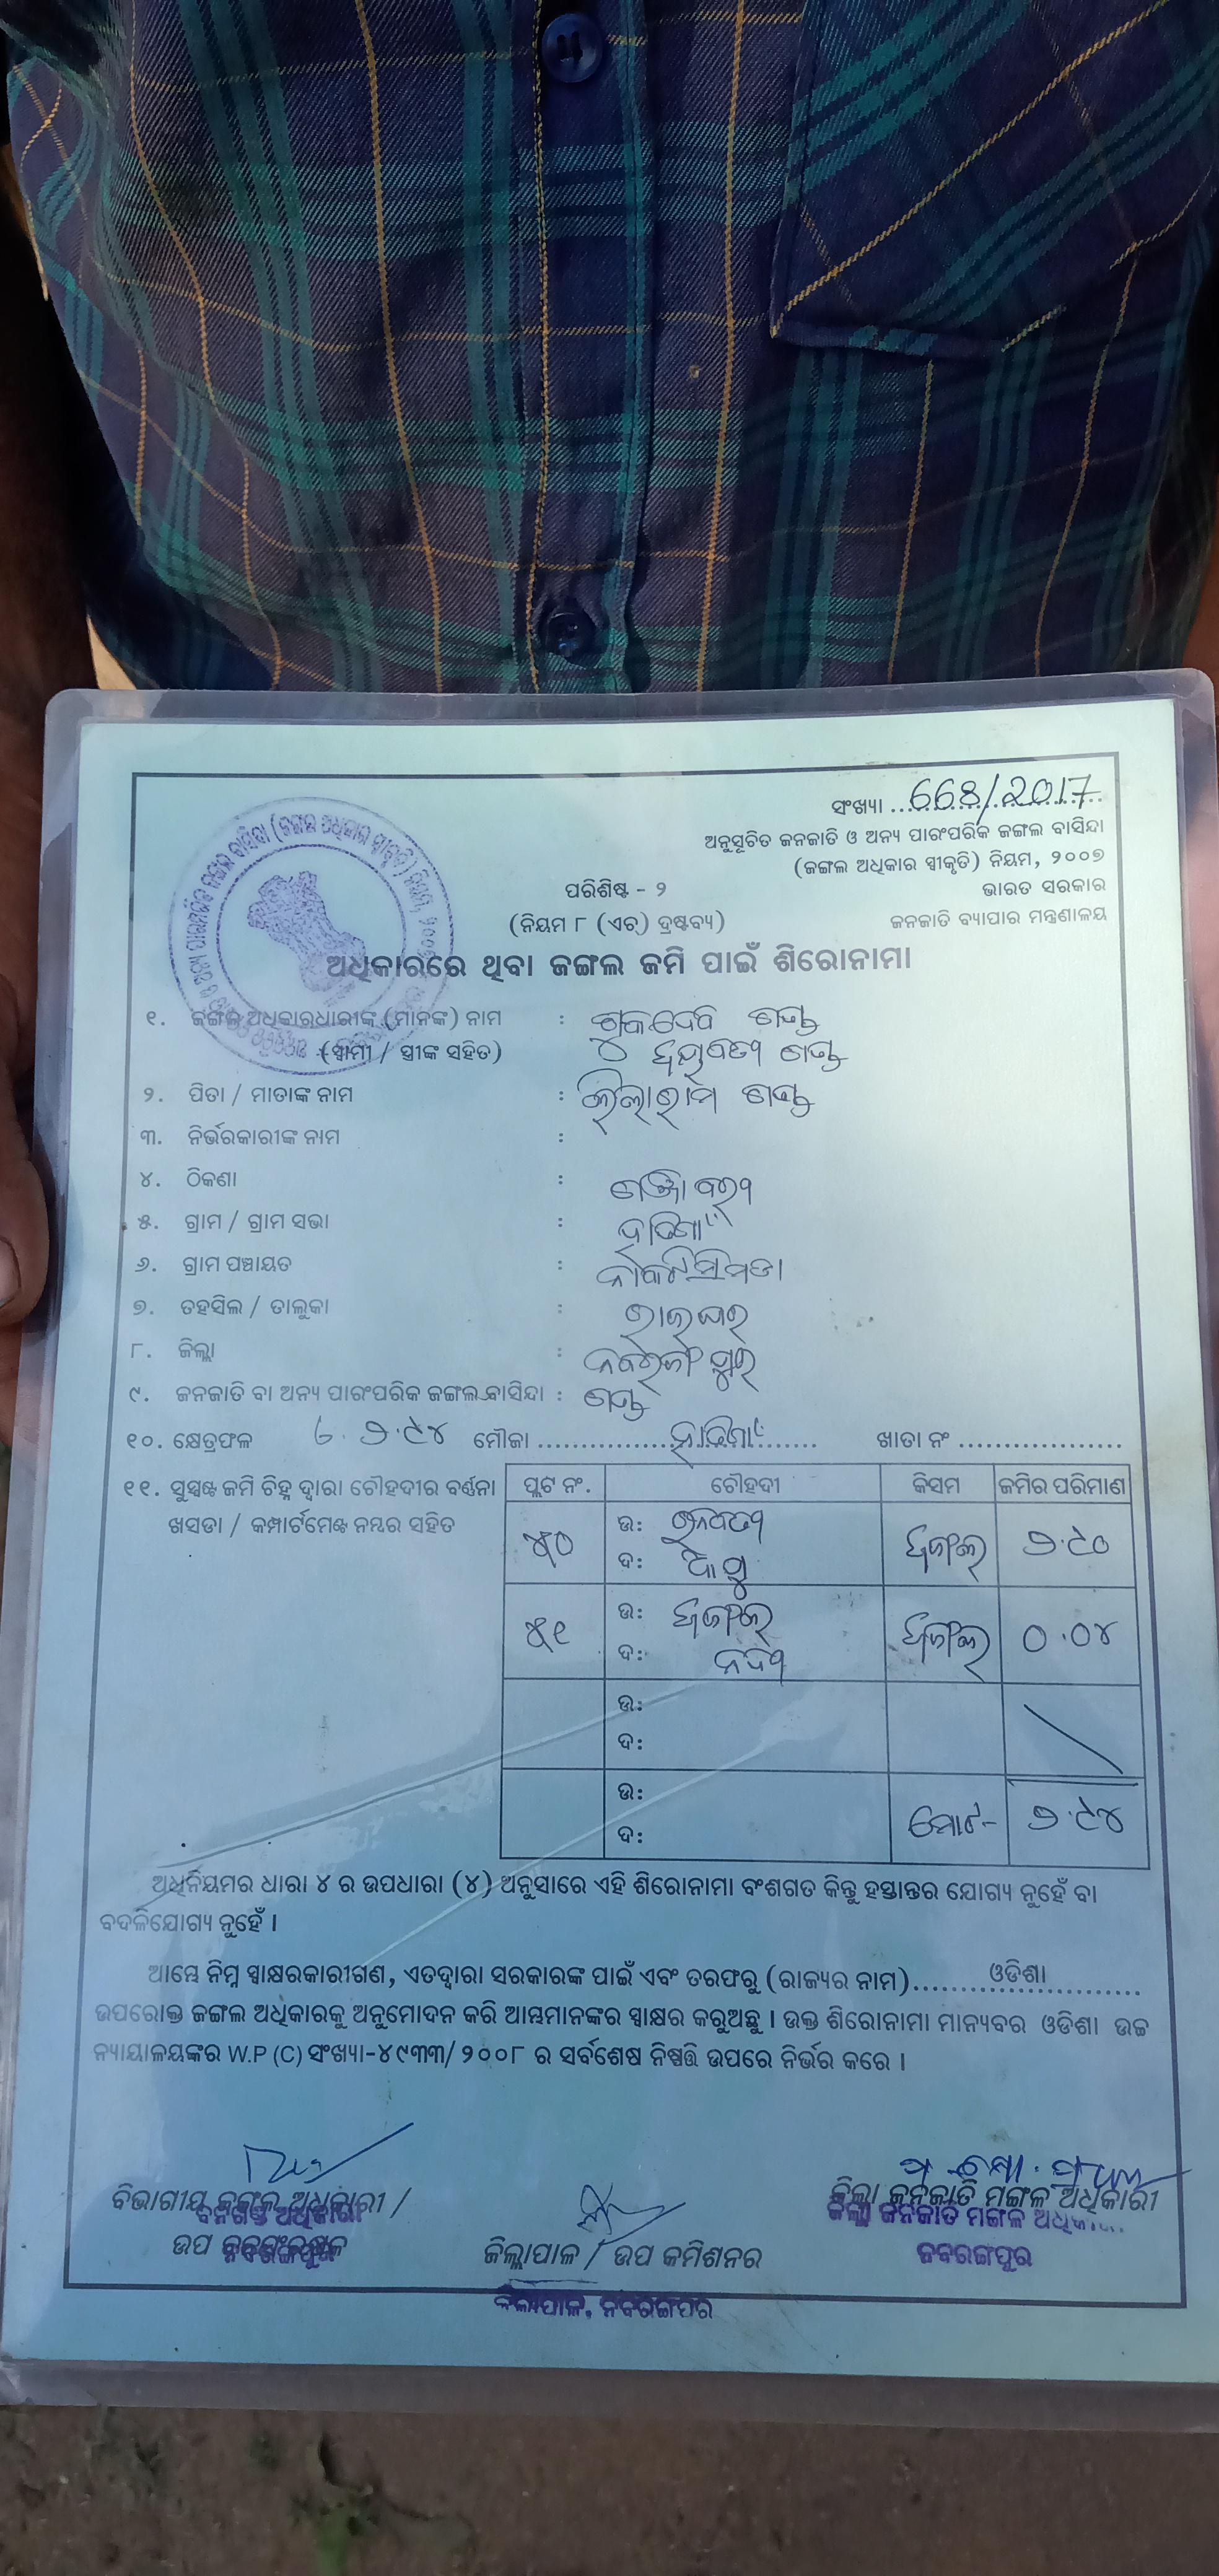 ସଂଖ୍ୟା 668/2017
ଅନୁସୂଚିତ ଜନଜାତି ଓ ଅନ୍ୟ ପାରଂପରିକ ଜଙ୍ଗଲ ବାସିନ୍ଦା
(ଜଙ୍ଗଲ ଅଧିକାର ସ୍ୱୀକୃତି) ନିୟମ, ୨୦୦୭
ପରିଶିଷ୍ଟ - ୨ ଭାରତ ସରକାର
(ନିୟମ ୮ (ଏଚ୍) ଦ୍ରଷ୍ଟବ୍ୟ) ଜନଜାତି ବ୍ୟାପାର ମନ୍ତ୍ରଣାଳୟ
ଅଧିକାରରେ ଥିବା ଜଙ୍ଗଲ ଜମି ପାଇଁ ଶିରୋନାମା
୧. ଜଙ୍ଗଲ ଅଧିକାରଧାରୀଙ୍କ (ମାନଙ୍କ) ନାମ : ଶୁକଦେବ ଗଣ୍ଡ
(ସ୍ୱାମୀ / ସ୍ତ୍ରୀଙ୍କ ସହିତ) ଗଣ୍ଡ
୨. ପିତା / ମାତାଙ୍କ ନାମ : ଲିଲାରାମ ଗଣ୍ଡ
୩. ନିର୍ଭରକାରୀଙ୍କ ନାମ :
୪. ଠିକଣା :
୫. ଗ୍ରାମ / ଗ୍ରାମ ସଭା :
୬. ଗ୍ରାମ ପଞ୍ଚାୟତ :
୭. ତହସିଲ / ତାଲୁକା : ରାଇଘର
୮. ଜିଲ୍ଲା : ନବରଙ୍ଗପୁର
୯. ଜନଜାତି ବା ଅନ୍ୟ ପାରଂପରିକ ଜଙ୍ଗଲ ବାସିନ୍ଦା : ଗଣ୍ଡ
୧୦. କ୍ଷେତ୍ରଫଳ ୭.୯୪ ମୌଜା ଖାତା ନଂ
୧୧. ସୁସ୍ପଷ୍ଟ ଜମି ଚିହ୍ନ ଦ୍ୱାରା ଚୌହଦୀର ବର୍ଣ୍ଣନା
ଖସଡା / କମ୍ପାର୍ଟମେଣ୍ଟ ନମ୍ବର ସହିତ
ପ୍ଲଟ ନଂ. ଚୌହଦୀ କିସମ ଜମିର ପରିମାଣ
୫୦ ଉ: ଜଙ୍ଗଲ ୭.୯୦
ଦ:
୫୧ ଉ: ଜଙ୍ଗଲ ଜଙ୍ଗଲ ୦.୦୪
ଦ: ନଦୀ
ଉ:
ଦ:
ଉ: ମୋଟ- ୭.୯୪
ଦ:
ଅଧିନିୟମର ଧାରା ୪ ର ଉପଧାରା (୪) ଅନୁସାରେ ଏହି ଶିରୋନାମା ବଂଶଗତ କିନ୍ତୁ ହସ୍ତାନ୍ତର ଯୋଗ୍ୟ ନୁହେଁ ବା
ବଦଳିଯୋଗ୍ୟ ନୁହେଁ ।
ଆମ୍ଭେ ନିମ୍ନ ସ୍ୱାକ୍ଷରକାରୀଗଣ, ଏତଦ୍ୱାରା ସରକାରଙ୍କ ପାଇଁ ଏବଂ ତରଫରୁ (ରାଜ୍ୟର ନାମ) ଓଡିଶା
ଉପରୋକ୍ତ ଜଙ୍ଗଲ ଅଧିକାରକୁ ଅନୁମୋଦନ କରି ଆମ୍ଭମାନଙ୍କର ସ୍ୱାକ୍ଷର କରୁଅଛୁ । ଉକ୍ତ ଶିରୋନାମା ମାନ୍ୟବର ଓଡିଶା ଉଚ୍ଚ
ନ୍ୟାୟାଳୟଙ୍କର W.P (C) ସଂଖ୍ୟା-୪୯୩୩/ ୨୦୦୮ ର ସର୍ବଶେଷ ନିଷ୍ପତ୍ତି ଉପରେ ନିର୍ଭର କରେ ।
ବିଭାଗୀୟ ଜଙ୍ଗଲ ଅଧିକାରୀ / ଜିଲ୍ଲା ଜନଜାତି ମଙ୍ଗଳ ଅଧିକାରୀ
ବନଖଣ୍ଡ ଅଧିକାରୀ ଜିଲ୍ଲା ଜନଜାତି ମଙ୍ଗଳ
ଉପ ନବରଙ୍ଗପୁର ଜିଲ୍ଲାପାଳ / ଉପ କମିଶନର ନବରଙ୍ଗପୁର
ଜିଲ୍ଲାପାଳ, ନବରଙ୍ଗପୁର